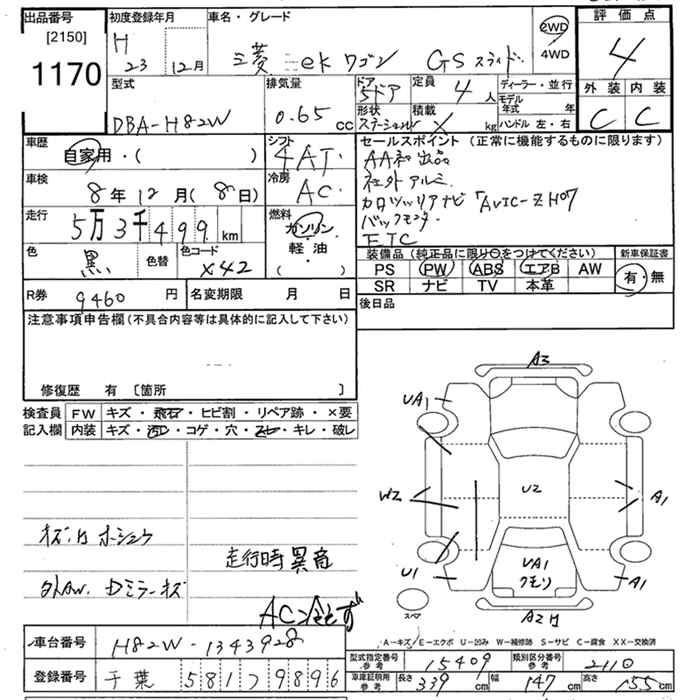 出品番号
[2150]
1170
初度登録年月
H
23 12月
車名・グレード
三菱 ek ワゴン GS スライド
2WD
4WD
評価点
4
外装 内装
C C
型式
DBA-H82W
排気量
0.65 cc
ドア
5ドア
定員
4 人
形状
積載
kg
ディーラー・並行
モデル年式 年
ハンドル 左・右
車歴
自家用・( )
シフト
4AT
車検
8年12月(8日)
冷房
AC
走行
5万3千499 km
燃料
ガソリン・
軽・油
( )
色
黒
色替
色コード
X42
R券
9460 円
名変期限 月 日
セールスポイント (正常に機能するものに限ります)
AA初出品
社外アルミ
カロッツェリアナビ「AVIC-ZH07
バックモニター
ETC
装備品(純正品に限り○をつけてください)
PS PW ABS エアB AW
SR ナビ TV 本革
新車保証書
有・無
後日品
注意事項申告欄(不具合内容等は具体的に記入して下さい)
修復歴 有 〔箇所 〕
検査員記入欄
FW キズ・飛石・ヒビ割・リペア跡・×要
内装 キズ・汚レ・コゲ・穴・スレ・キレ・破レ
走行時異音
外AW. Dミラーキズ
A3
UA1
W2
U2
A1
U1
UA1
クモリ
A1
スペア
A-キズ E-エクボ U-凹み W-補修跡 S-サビ C-腐食 XX-交換済
車台番号
H82W-1343928
登録番号
千葉 581 9896
型式指定番号
参考
15409
類別区分番号
参考
2110
車庫証明用
参考
長さ
339 cm
幅
147 cm
高さ
155 cm